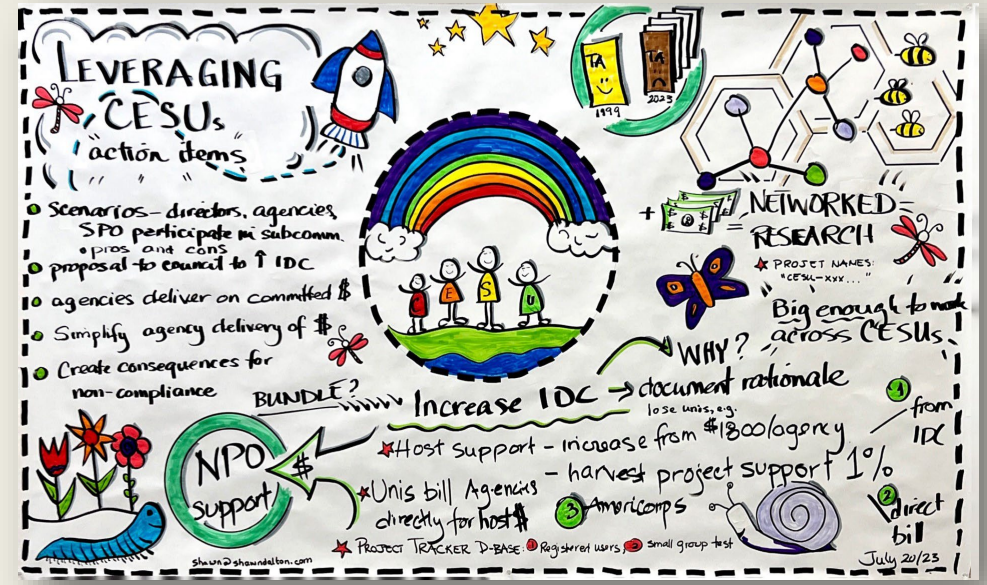 LEVERAGING
CESUs
action items
TA
1999
TA
2023
Scenarios – directors, agencies,
SPO participate in subcomm.
• pros and cons
proposal to council to ↑ IDC
agencies deliver on committed $
Simplify agency delivery of $
Create consequences for
non-compliance
C E S U
+ $ = NETWORKED
RESEARCH
PROJET NAMES:
"CESU-XXX..."
Big enough to work
across CESUs
BUNDLE?
Increase IDC → document rationale
WHY?
lose unis, e.g.
Host support – increase from $1800/agency
– harvest project support 1%
1 from
IDC
NPO
support
$
Unis bill Agencies
directly for host $
3 Americorps
2 direct
bill
PROJECT TRACKER D-BASE: 1 Registered users, 2 small group test
shawn@shawndalton.com
July 20/23